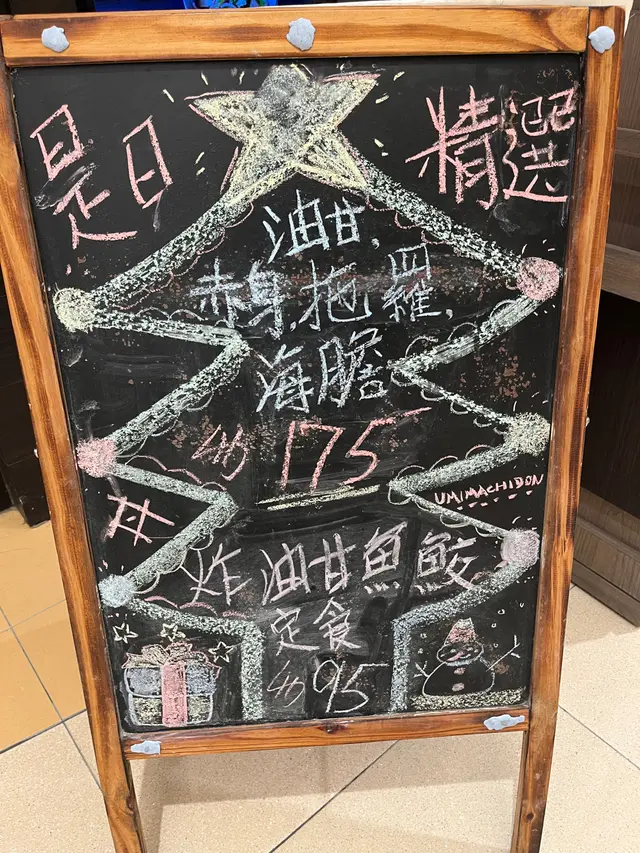 是日 精選
油甘,
赤身,拖羅,
海膽
丼 $175
UMIMACHIDON
炸油甘魚鮫
定食
$95